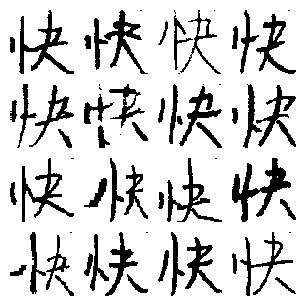 快快快快
快快快快
快快快快
快快快快